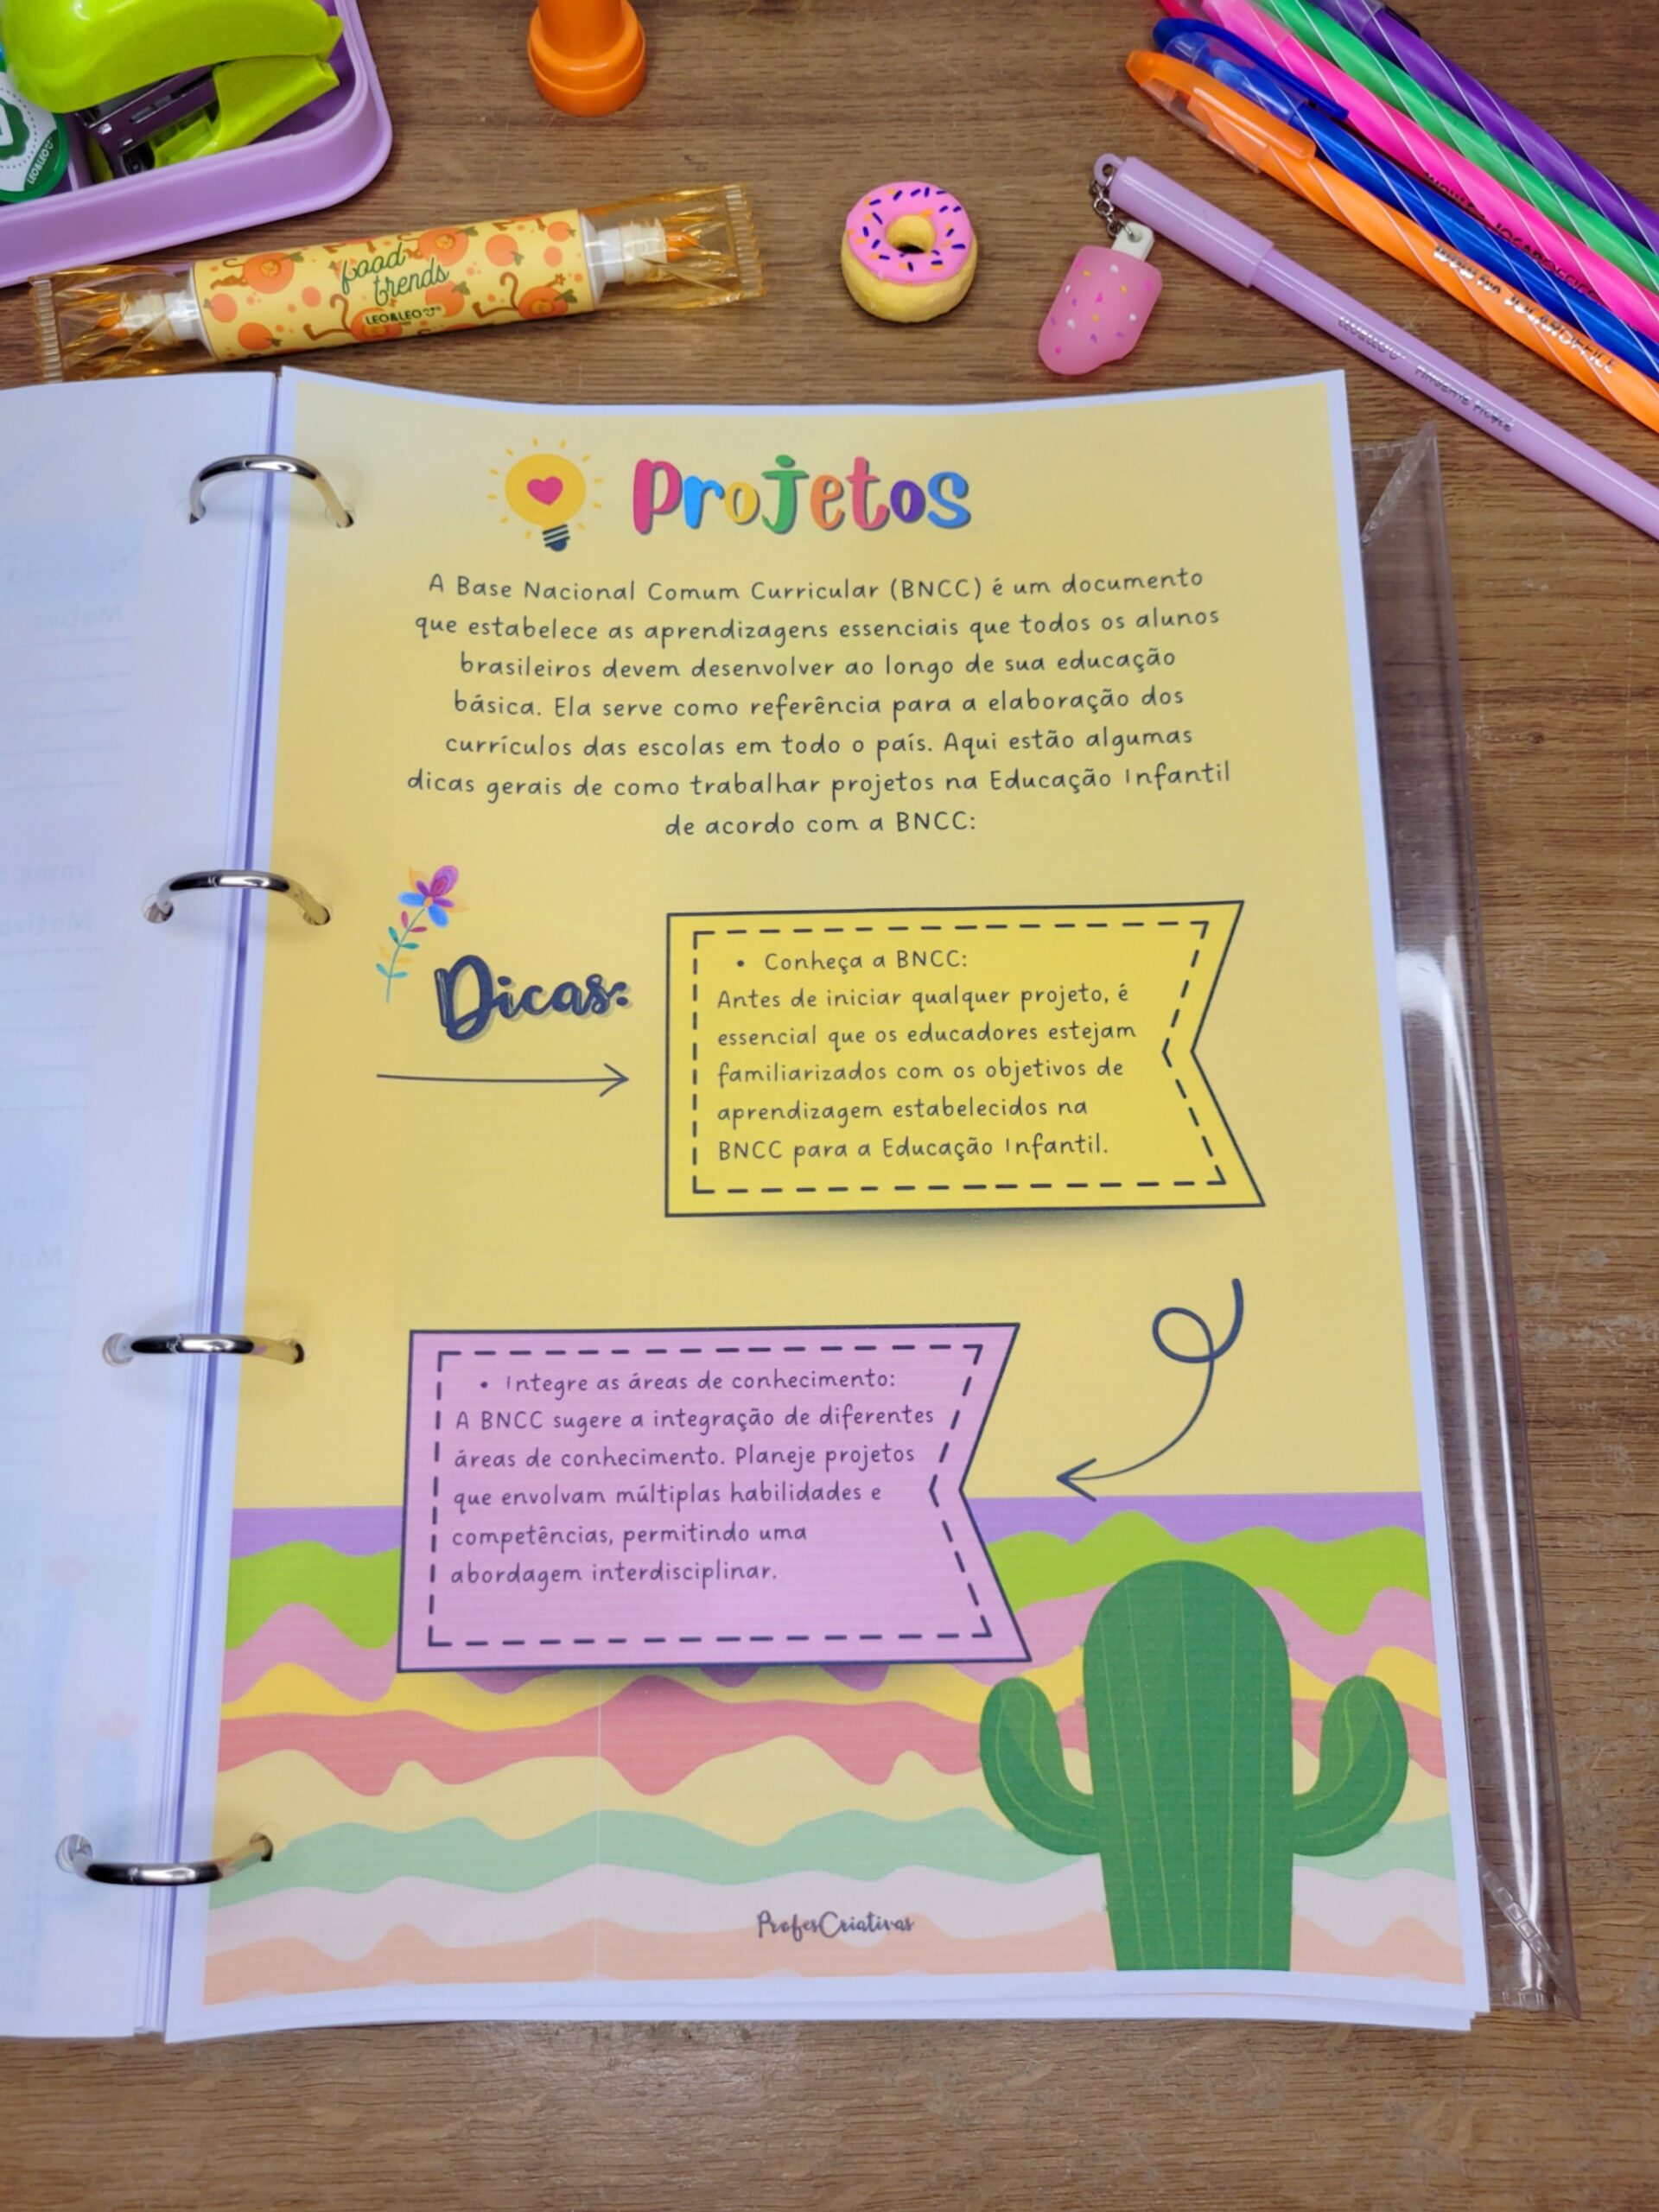 food
trends
LEO&LEO
LEO&LEO
Projetos
A Base Nacional Comum Curricular (BNCC) é um documento
que estabelece as aprendizagens essenciais que todos os alunos
brasileiros devem desenvolver ao longo de sua educação
básica. Ela serve como referência para a elaboração dos
currículos das escolas em todo o país. Aqui estão algumas
dicas gerais de como trabalhar projetos na Educação Infantil
de acordo com a BNCC:
Dicas:
• Conheça a BNCC:
Antes de iniciar qualquer projeto, é
essencial que os educadores estejam
familiarizados com os objetivos de
aprendizagem estabelecidos na
BNCC para a Educação Infantil.
• Integre as áreas de conhecimento:
A BNCC sugere a integração de diferentes
áreas de conhecimento. Planeje projetos
que envolvam múltiplas habilidades e
competências, permitindo uma
abordagem interdisciplinar.
ProfesCriativas